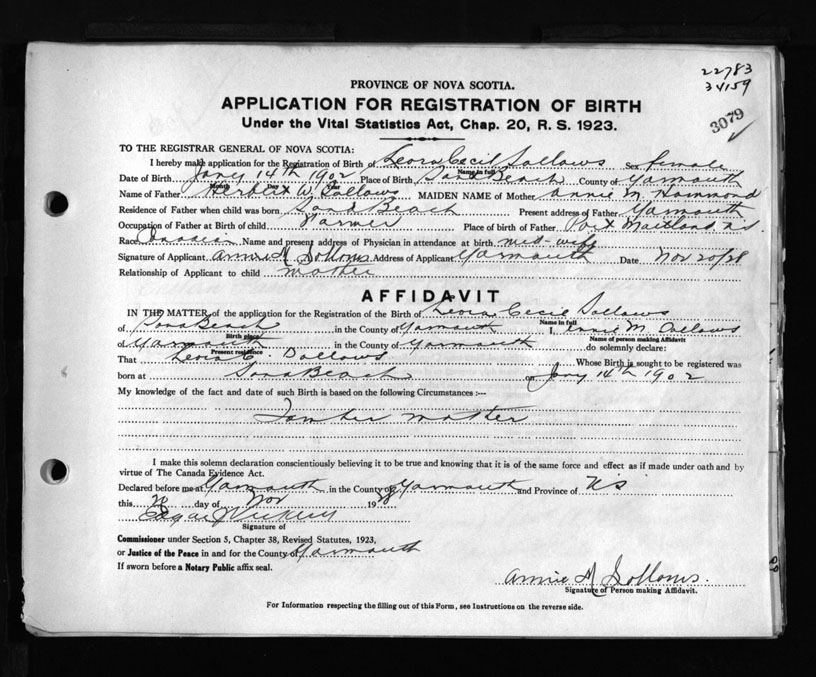 22783
34159
3079
PROVINCE OF NOVA SCOTIA.
APPLICATION FOR REGISTRATION OF BIRTH
Under the Vital Statistics Act, Chap. 20, R. S. 1923.
TO THE REGISTRAR GENERAL OF NOVA SCOTIA:
I hereby make application for the Registration of Birth of Leora Cecil Sollows Sex female
Name in full
Date of Birth Jany 14th 1902 Place of Birth Sand Beach County of Yarmouth
Month Day Year
Name of Father Herbert W. Sollows MAIDEN NAME of Mother Annie M Hammond
Residence of Father when child was born Sand Beach Present address of Father Yarmouth
Occupation of Father at Birth of child Farmer Place of birth of Father Port Maitland N.S.
Race Name and present address of Physician in attendance at birth mid-wife
Signature of Applicant Annie M Sollows Address of Applicant Yarmouth Date Nov 20/28
Relationship of Applicant to child mother
AFFIDAVIT
IN THE MATTER of the application for the Registration of the Birth of Leora Cecil Sollows
Name in full
of Sand Beach in the County of Yarmouth I, Annie M. Sollows
Birth place Name of person making Affidavit
of Yarmouth in the County of Yarmouth do solemnly declare:
Present residence
That Leora C. Sollows Whose Birth is sought to be registered was
born at Sand Beach on Jany 14th 1902
My knowledge of the fact and date of such Birth is based on the following Circumstances :—
I am her mother
I make this solemn declaration conscientiously believing it to be true and knowing that it is of the same force and effect as if made under oath and by
virtue of The Canada Evidence Act.
Declared before me at Yarmouth in the County of Yarmouth and Province of NS
this 20 day of Nov 1928
Edgar J Vickery
Signature of
Commissioner under Section 5, Chapter 38, Revised Statutes, 1923,
or Justice of the Peace in and for the County of Yarmouth
If sworn before a Notary Public affix seal.
Annie M Sollows.
Signature of Person making Affidavit.
For Information respecting the filling out of this Form, see Instructions on the reverse side.